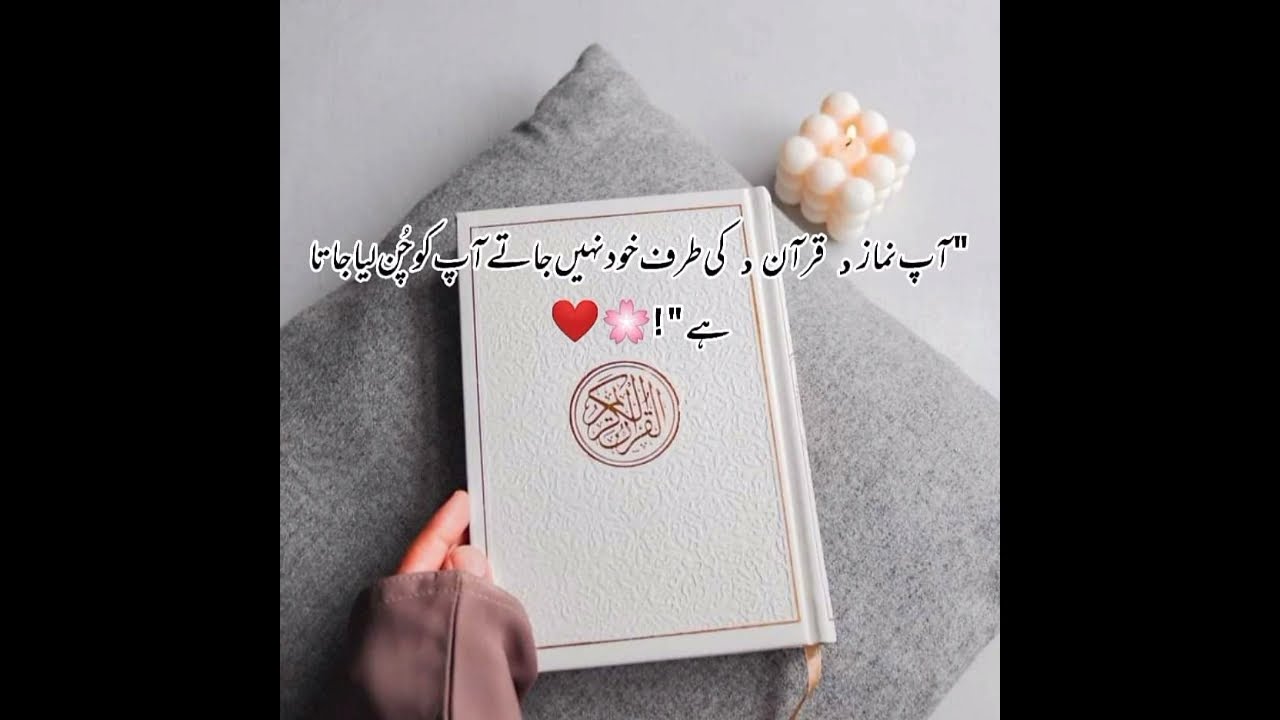 "آپ نماز و قرآن و کی طرف خود نہیں جاتے آپ کو چُن لیا جاتا
ہے"!🌸❤️
القرآن الكريم